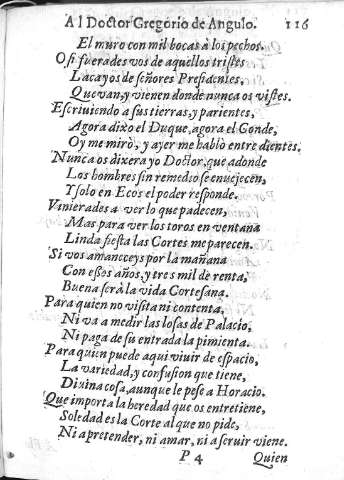 Al Doctor Gregorio de Angulo. 116
El muro con mil bocas à los pechos.
O si fuerades vos de aquellos tristes
Lacayos de señores Presidentes,
Que van, y vienen donde nunca os vistes.
Escriuiendo a sus tierras, y parientes,
Agora dixo el Duque, agora el Conde,
Oy me mirò, y ayer me hablò entre dientes.
Nunca os dixera yo Doctor, que adonde
Los hombres sin remedio se enuejecen,
Y solo en Ecos el poder responde.
Vinierades a ver lo que padecen,
Mas para ver los toros en ventana
Linda fiesta las Cortes me parecen.
Si vos amaneceys por la mañana
Con essos años, y tres mil de renta,
Buena serà la vida Cortesana.
Para quien no visita ni contenta,
Ni va a medir las losas de Palacio,
Ni paga de su entrada la pimienta.
Para quien puede aqui viuir de espacio,
La variedad, y confusion que tiene,
Diuina cosa, aunque le pese a Horacio.
Que importa la heredad que os entretiene,
Soledad es la Corte al que no pide,
Ni a pretender, ni amar, ni a seruir viene.
P 4 Quien